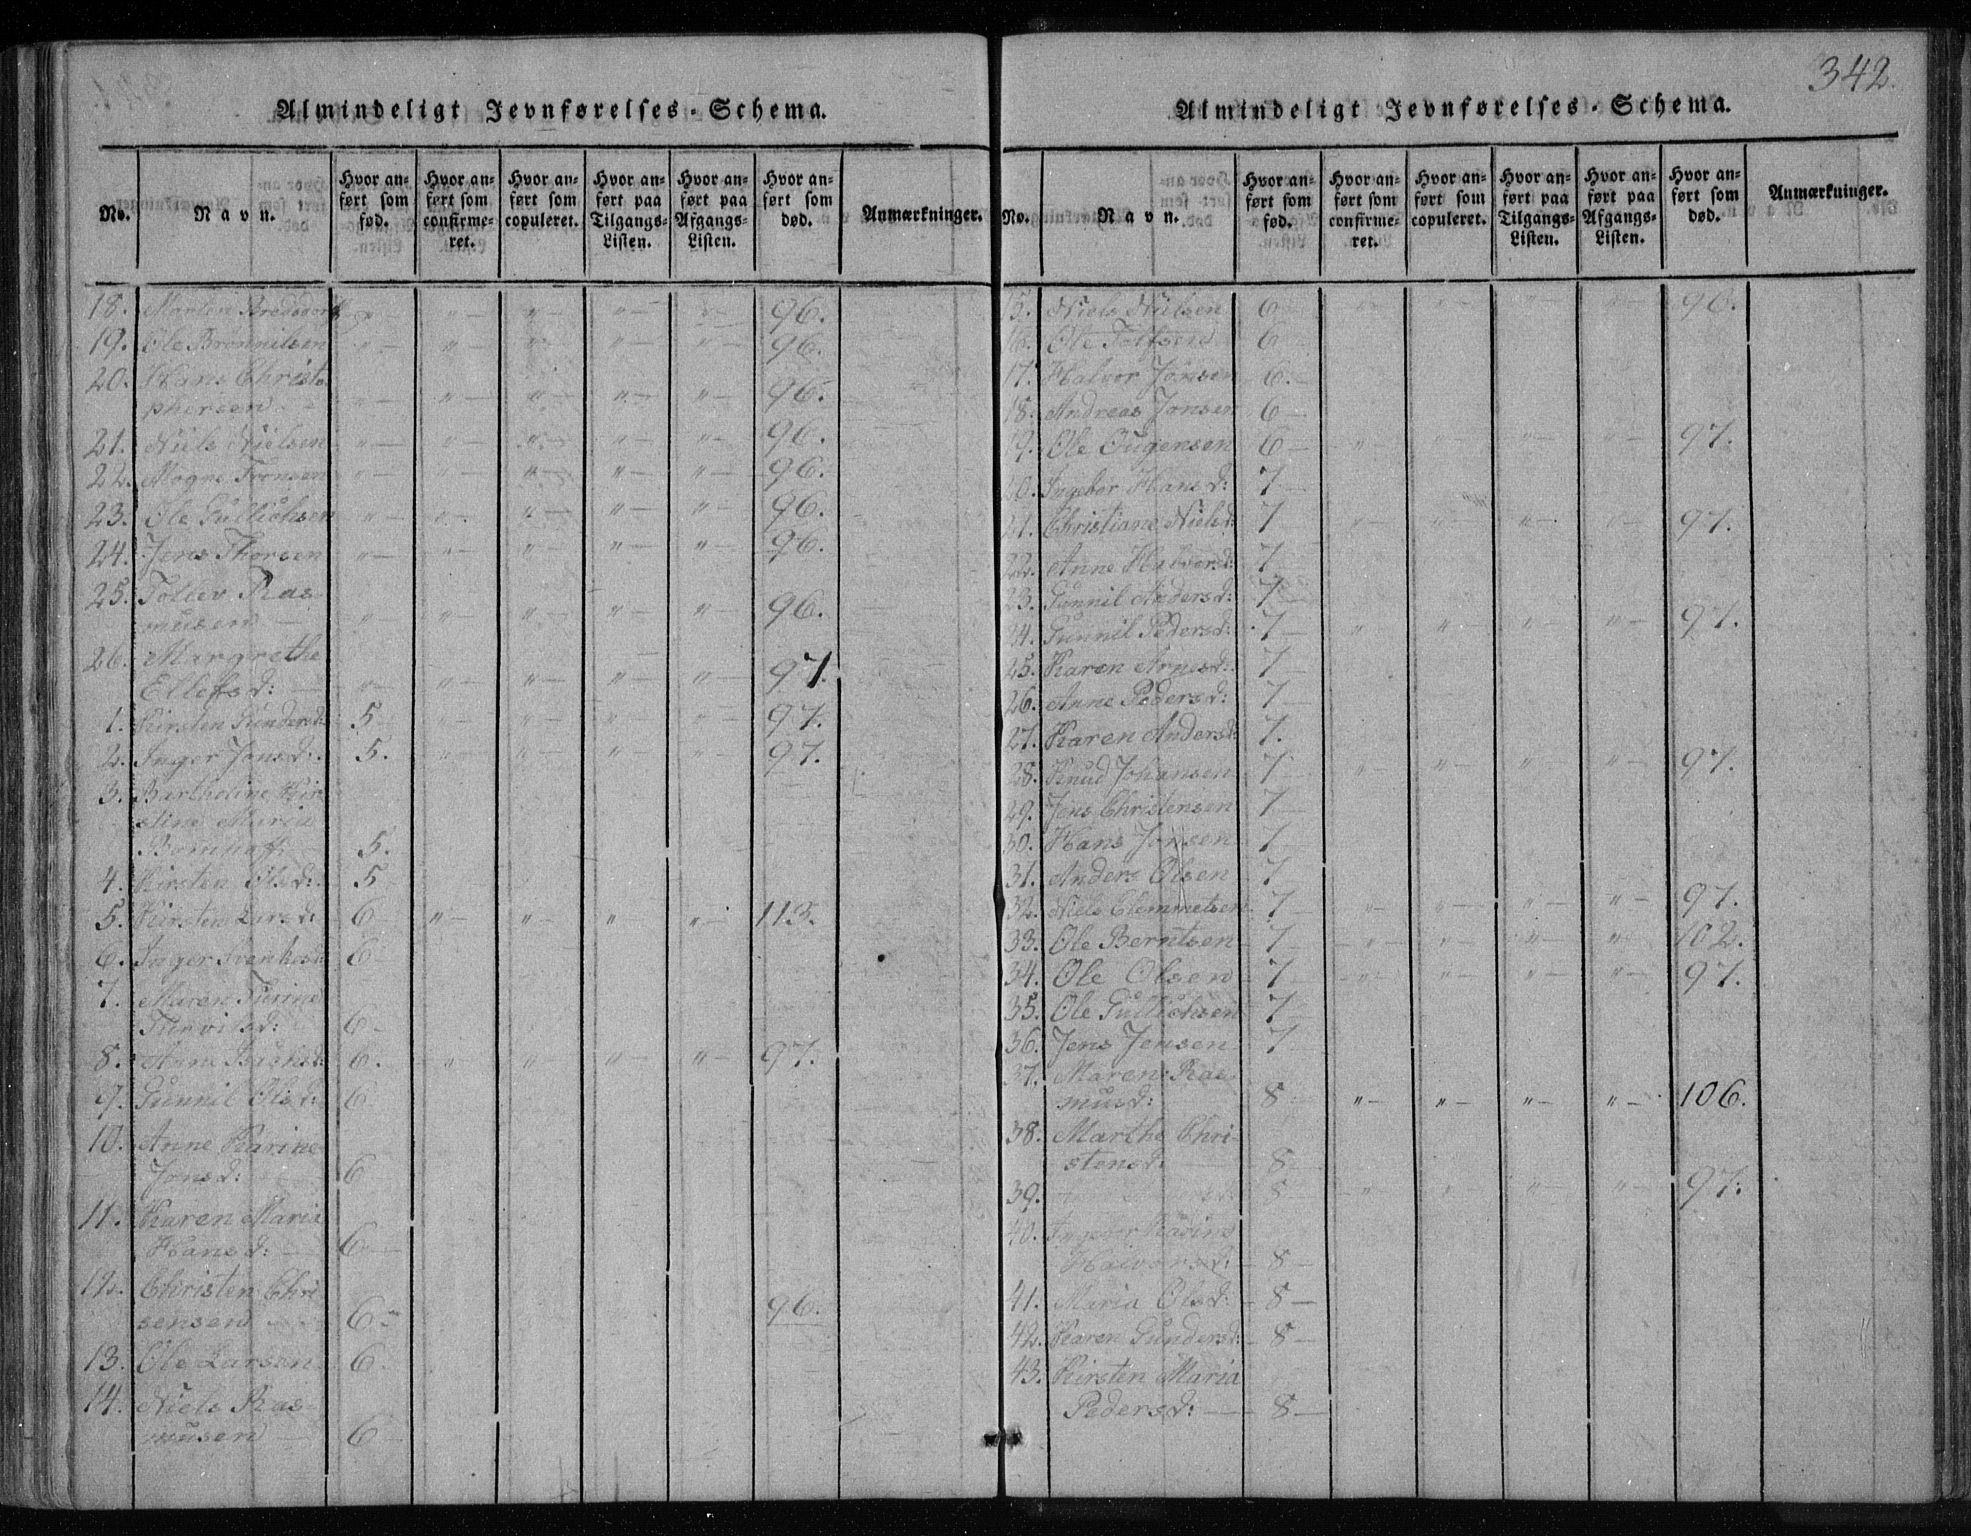 342.
Almindeligt Jevnførelses-Schema.
No. Navn. Hvor anført som fød. Hvor anført som confirmeret. Hvor anført som copuleret. Hvor anført paa Tilgangs-Listen. Hvor anført paa Afgangs-Listen. Hvor anført som død. Anmærkninger.
18. Morten Bredsdorff „ „ „ „ „ 96.
19. Ole Brønnilsen „ „ „ „ „ 96.
20. Hans Christo
phersen „ „ „ „ „ 96.
21. Niels Nielsen „ „ „ „ „ 96.
22. Mogne Tronsen „ „ „ „ „ 96.
23. Ole Gullichsen „ „ „ „ „ 96.
24. Jens Thorsen „ „ „ „ „ 96.
25. Tollev Ras
musen „ „ „ „ „ 96.
26. Margrethe
Ellefsd: „ „ „ „ „ 97.
1. Kirsten Gundersd: 5 „ „ „ „ 97.
2. Inger Jonsd: 5. „ „ „ „ 97.
3. Bartholine Kir
stine Maria
5.
4. Kirsten Olsd: 5
5. Kirsten Larsd: 6 „ „ „ „ 113.
6. Inger 6
7. Maren
6
8. Anne 6. „ „ „ „ 97.
9. Gunnil Olsd: 6
10. Anne Karine
Jonsd: 6
11. Karen Maria
Hansd: 6
12. Christen Chri
sensen 6 96.
13. Ole Larsen 6.
14. Niels Ras
musen 6
Almindeligt Jevnførelses-Schema.
No. Navn. Hvor anført som fød. Hvor anført som confirmeret. Hvor anført som copuleret. Hvor anført paa Tilgangs-Listen. Hvor anført paa Afgangs-Listen. Hvor anført som død. Anmærkninger.
15. Niels Nielsen 6 „ „ „ „ 96.
16. Ole Tolfsen 6
17. Halvor Jonsen 6.
18. Andreas Jonsen 6
19. Ole 6 „ „ „ „ 97.
20. Ingebor Hansd: 7
21. Christiane Nielsd: 7 „ „ „ „ 97.
22. Anne Halvorsd: 7
23. Gunnil Andersd: 7
24. Gunnil Pedersd: 7 „ „ „ „ 97.
25. Karen Arnesd: 7
26. Anne Pedersd: 7
27. Karen Andersd: 7.
28. Knud Johansen 7 „ „ „ „ 97.
29. Jens Christensen 7
30. Hans Jonsen 7
31. Anders Olsen 7
32. Niels Clemmetsen 7 „ „ „ „ 97.
33. Ole Berntsen 7 „ „ „ „ 102.
34. Ole Olsen 7 „ „ „ „ 97.
35. Ole Gullichsen 7
36. Jens Jensen 7
37. Maren Ras
musd: 8 „ „ „ „ 106.
38. Marthe Chri
stensd: 8
39. 8 „ „ „ „ 97.
40. Inger
Halvorsd: 8
41. Maria Olsd: 8
42. Karen Gundersd: 8
43. Kirsten Maria
Pedersd: 8